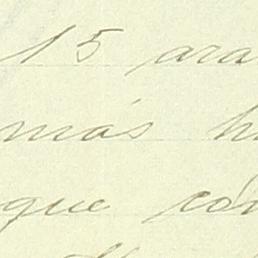 15 ara
más h
que cón